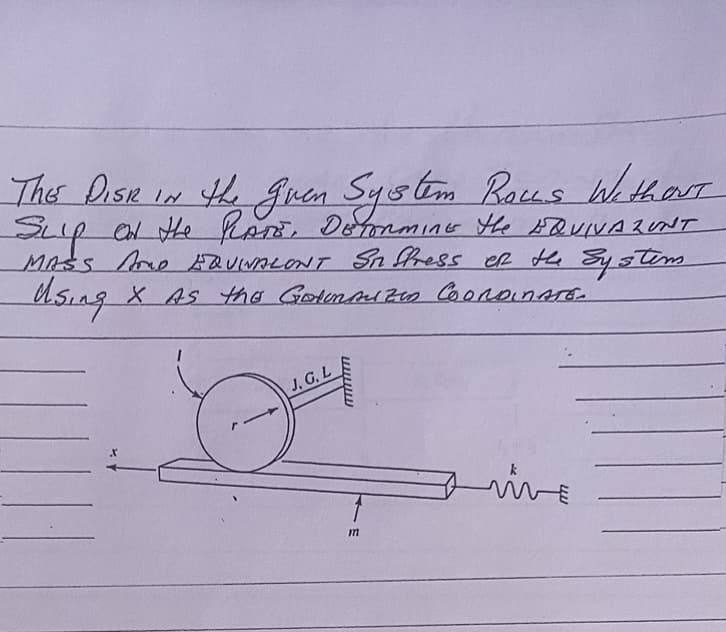 The Disk in the given System Rolls Without
Slip on the Plate, Determine the Equivalent
Mass And Equivalent Stiffness of the System
Using X As the Generalized Coordinate.
I
J. G. L
r
x
k
m